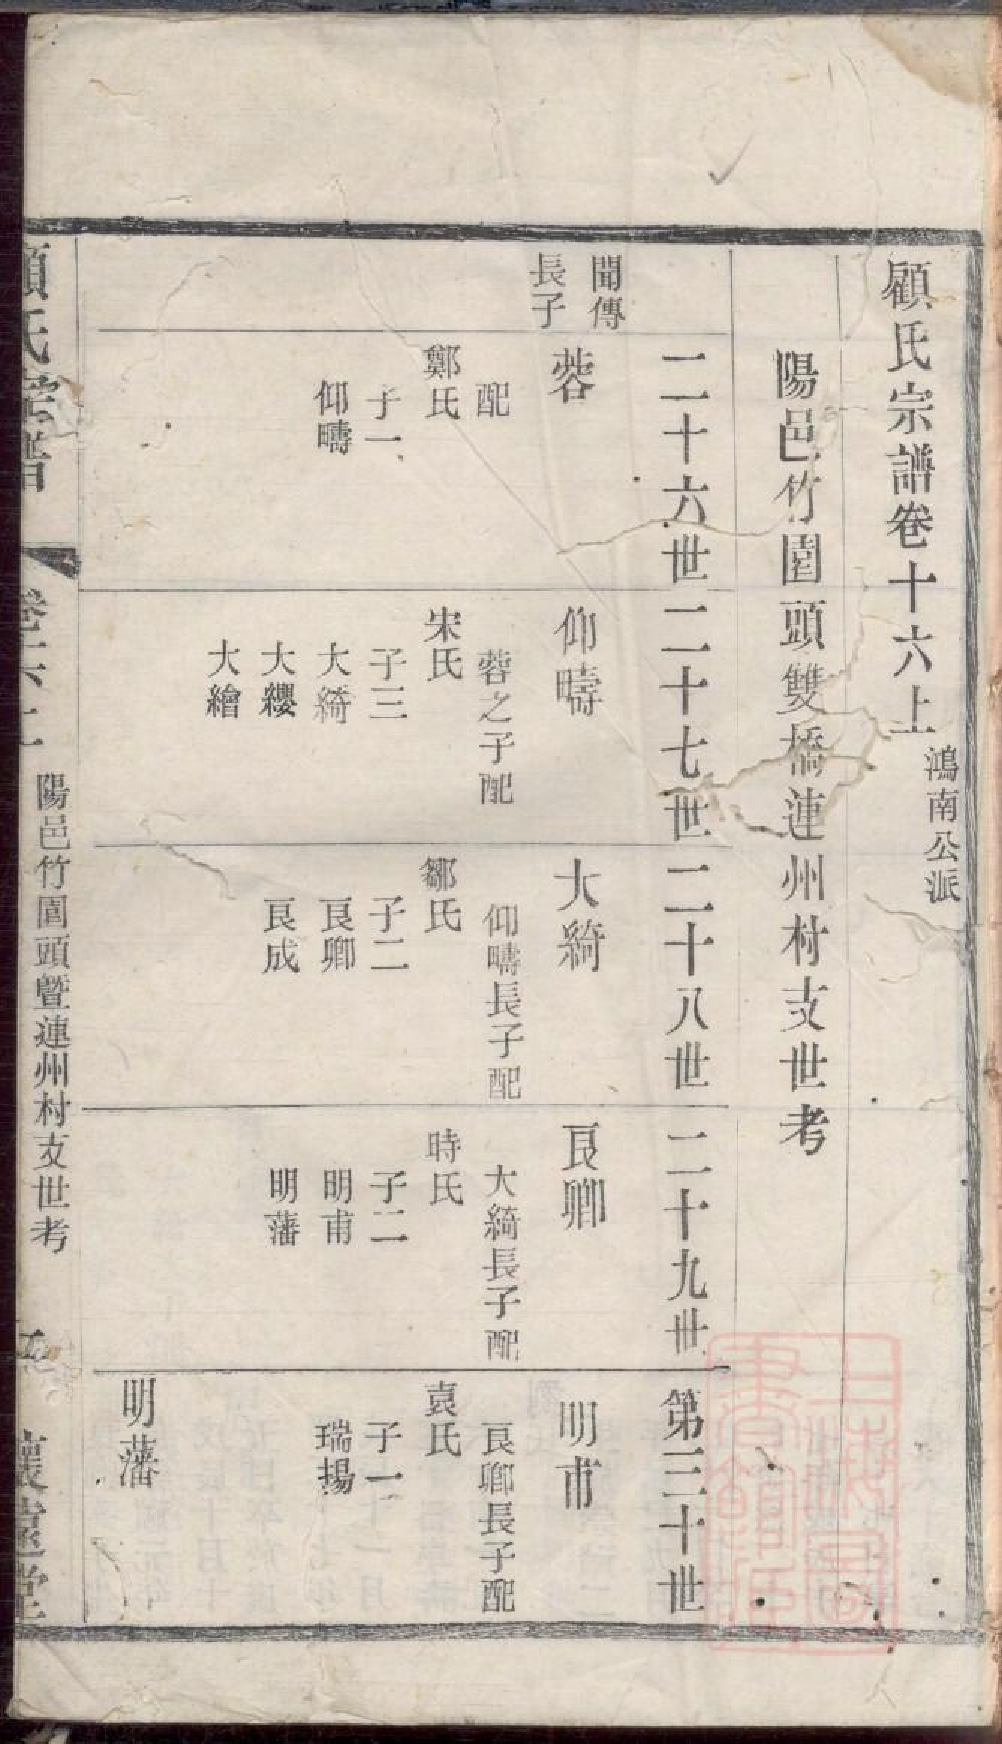 顧氏宗譜卷十六上
鴻南公派
陽邑竹園頭雙橋連州村支世考
二十六世
二十七世
二十八世
二十九世
第三十世
聞傳
長子
蓉
配
鄭氏
子一
仰疇
仰疇
蓉之子配
宋氏
子三
大綺
大纓
大繪
大綺
仰疇長子配
鄒氏
子二
良卿
良成
良卿
大綺長子配
時氏
子二
明甫
明藩
明甫
良卿長子配
袁氏
子一
瑞揚
明藩
顧氏宗譜
陽邑竹園頭暨連州村支世考